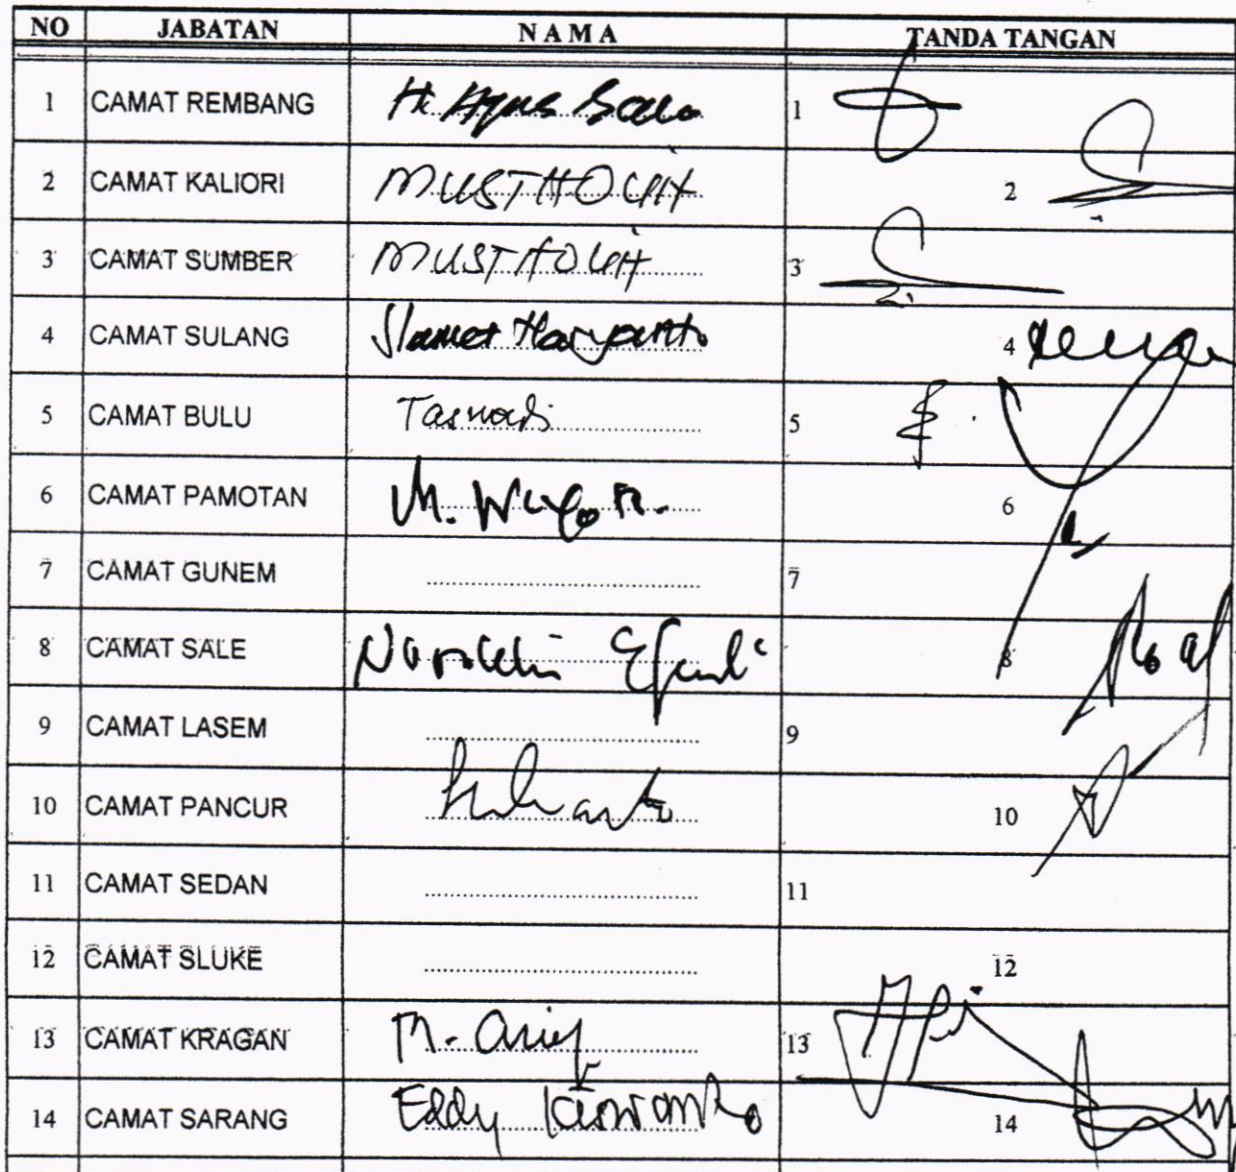 NO JABATAN NAMA TANDA TANGAN
1 CAMAT REMBANG H. Agus 1
2 CAMAT KALIORI MUSTHOLIH 2
3 CAMAT SUMBER MUSTHOLIH 3
4 CAMAT SULANG Slamet Haryanto 4
5 CAMAT BULU Tasnadi 5
6 CAMAT PAMOTAN M. 6
7 CAMAT GUNEM 7
8 CAMAT SALE 8
9 CAMAT LASEM 9
10 CAMAT PANCUR 10
11 CAMAT SEDAN 11
12 CAMAT SLUKE 12
13 CAMAT KRAGAN M. Arief 13
14 CAMAT SARANG Eddy Kiswanto 14